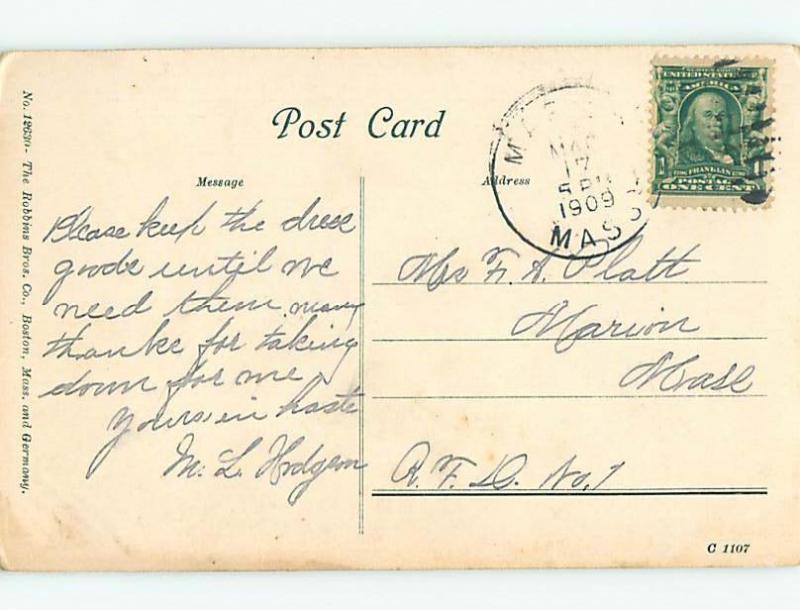 Post Card
Message
Address
No. 12630 - The Robbins Bros. Co., Boston, Mass. and Germany.
UNITED STATES
AMERICA
FRANKLIN
POSTAGE
ONE CENT
17
5 PM
1909
MASS
Please keep the dress
goods until we
need them, many
thanks for taking
down for me.
Yours in haste
M. L. Hodgson
Mrs F. A. Platt
Marion
Mass
R. F. D. No, 1
C 1107